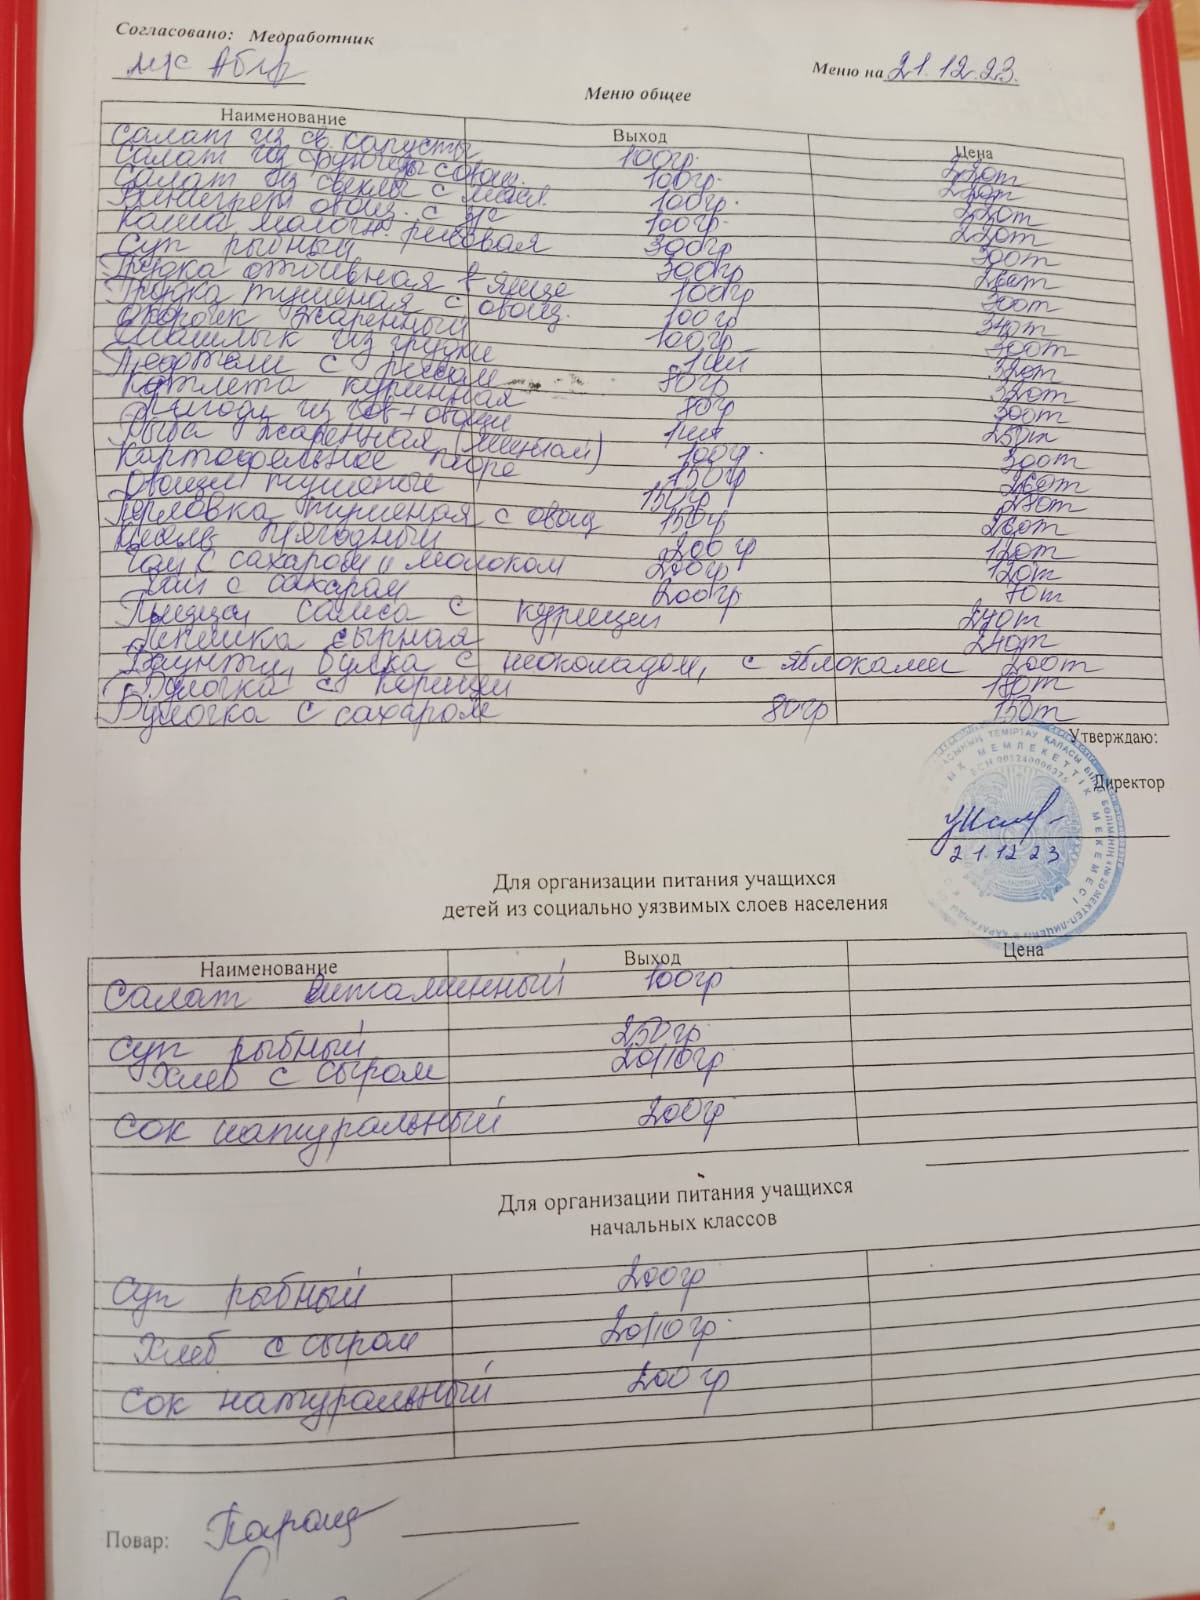 Согласовано: Медработник
м/с
Меню на 21.12.23.
Меню общее
Наименование Выход Цена
Салат из св. капусты 100гр.
Салат из фунчозы с овощ. 100гр.
Салат из свеклы с масл. 100гр.
Винегрет овощ. с р/с 100гр.
Каша молочн. рисовая 300гр 300т
Суп рыбный 300гр 260т
Грудка отбивная в яйце 100гр 300т
Грудка тушеная с овощ. 100гр 340т
Окорочек жаренный 100гр 300т
Шашлык из грудки 1шт
Тефтели с рисом 80гр 320т
Котлета куринная 80гр 300т
из гов + овощи 1шт 250т
Рыба жаренная (минтай) 100гр. 300т
Картофельное пюре 150гр 260т
Овощи тушеные 150гр 270т
Перловка тушеная с овощ 150гр 260т
Кисель ягодный 200гр 120т
Чай с сахаром и молоком 200гр 120т
Чай с сахаром 200гр 70т
Пицца, самса с курицей 240т
Лепешка сырная 240т
Баунти, булка с шоколадом, с яблоками 200т
Булочка с корицей 180т
Булочка с сахаром 80гр 150т
Утверждаю:
Директор
21.12.23
БСН 001240006375
Для организации питания учащихся
детей из социально уязвимых слоев населения
Наименование Выход Цена
Салат витаминный 100гр
Суп рыбный 250гр
Хлеб с сыром 20/10гр
Сок натуральный 200гр
Для организации питания учащихся
начальных классов
Суп рыбный 200гр
Хлеб с сыром 20/10гр.
Сок натуральный 200гр
Повар: